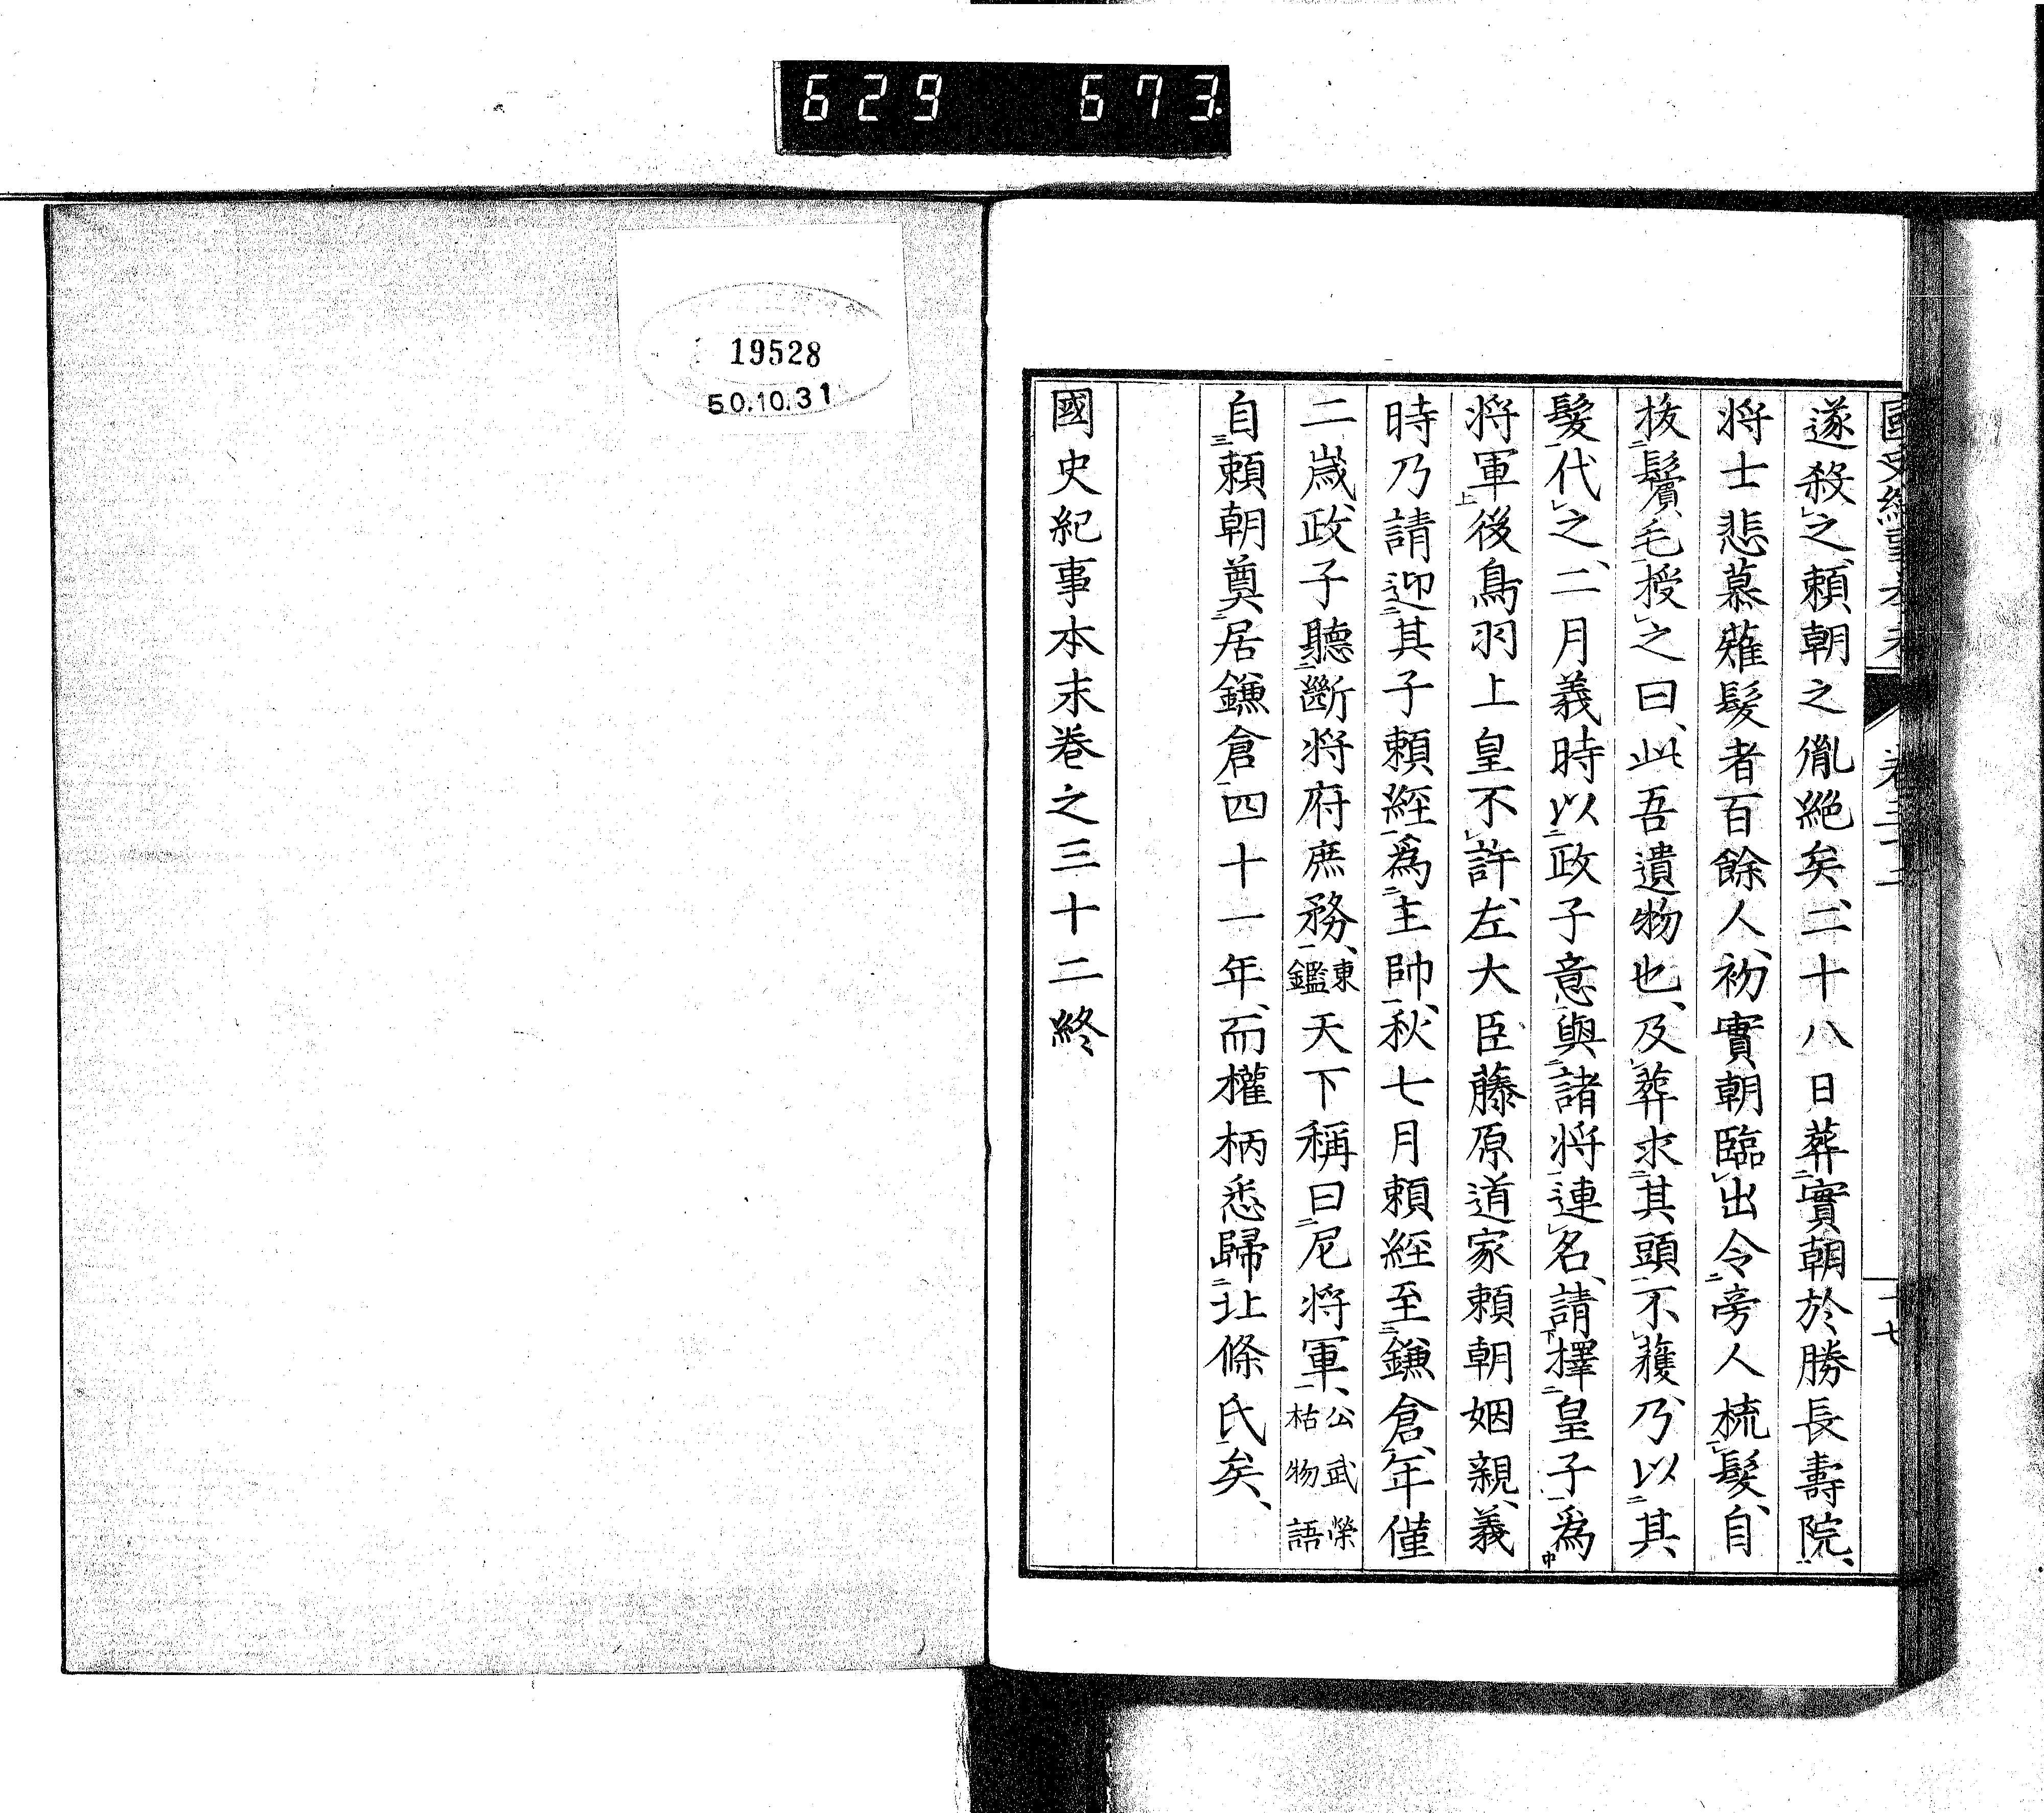 629 673
19528
50.10.31
遂殺之、頼朝之胤絶矣、二十八日葬實朝於勝長壽院、
将士悲慕薙髮者百餘人、初實朝臨出令旁人梳髮、自
抜鬢毛授之曰、此吾遺物也、及葬求其頭不獲、乃以其
髮代之、二月義時以政子意與諸将連名、請擇皇子為
将軍後鳥羽上皇不許、左大臣藤原道家頼朝姻親、義
時乃請迎其子頼經為主帥、秋七月頼經至鎌倉、年僅
二歳、政子聽斷将府庶務、東鑑天下稱曰尼将軍、公武榮枯物語
自頼朝奠居鎌倉四十一年、而權柄悉歸北條氏矣、
國史紀事本末巻之三十二終